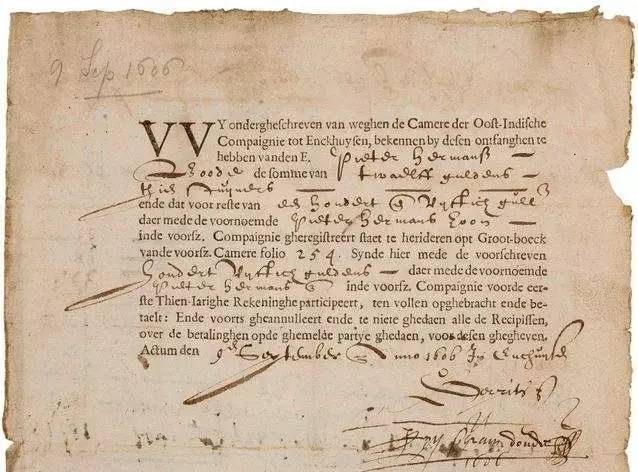 9 Sep 1606
VVY ondergheschreven van weghen de Camere der Oost-Indische
Compaignie tot Enckhuysen, bekennen by desen ontfanghen te
hebben vanden E. Pieter Hermansz
de somme van twaelff guldens
thien stuyvers
ende dat voor reste van hondert Vijftich gull
daer mede de voornoemde Pieter Hermans zoon
inde voorsz. Compaignie gheregistreert staet te herideren opt Groot-boeck
vande voorsz. Camere folio 254. Synde hier mede de voorschreven
hondert Vijftich guldens daer mede de voornoemde
Pieter Hermans inde voorsz. Compaignie voorde eer-
ste Thien-Iarighe Rekeninghe participeert, ten vollen opghebracht ende be-
taelt: Ende voorts gheannulleert ende te niete ghedaen alle de Recipissen,
over de betalinghen opde ghemelde partye ghedaen, voor desen ghegheven.
Actum den 9en September Anno 1606 In
Gerritsz
1606